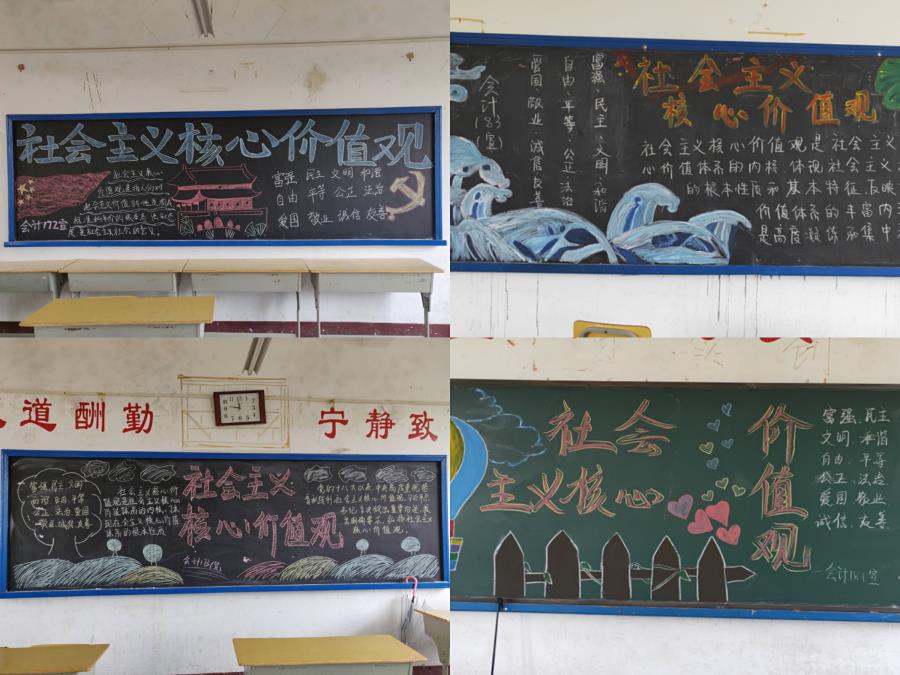 社会主义核心价值观
社会主义核心
价值观是指人们对
社会主义价值的性质、构成
富强 民主 文明 和谐
自由 平等 公正 法治
爱国 敬业 诚信 友善
会计172宣
富强·民主·文明·和谐
自由·平等·公正·法治
爱国·敬业·诚信·友善
会计183宣
社会主义
核心价值观
社会主义核心价值观是社会主义
心价值体系的内核,体现社会主义
的根本性质和基本特征,反映
价值体系的丰富内
是高度凝练和集中
道酬勤
宁静致
富强 民主 文明
和谐 自由 平等
公正 法治 爱国
敬业 诚信 友善
社会主义核心价
值观是社会主义核心
价值体系的内核,体
现社会主义核心价值
体系的根本性质
社会主义
核心价值观
党的十八大以来,中央高度重视培
育和践行社会主义核心价值观,习近平
社会
主义核心
价值观
富强、民主
文明、和谐
自由、平等
公正、法治
爱国、敬业
诚信、友善
会计181宣